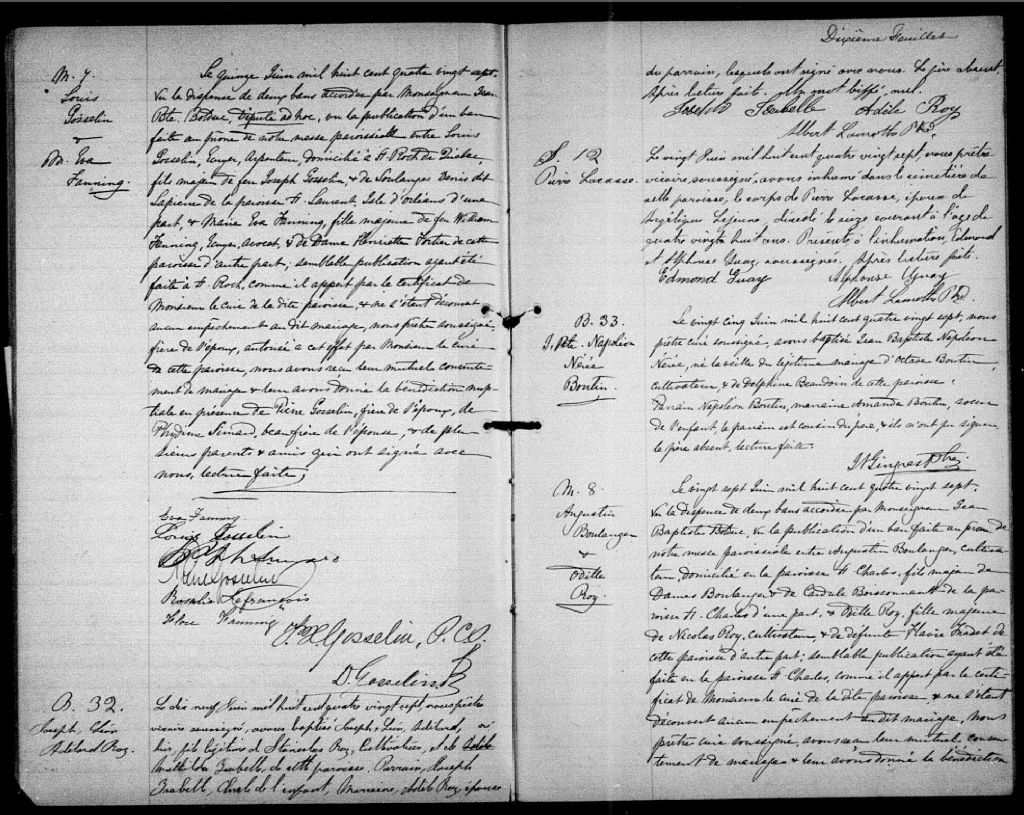 M. 7.
Louis
Gosselin
&
M. Eva
Fanning.
Le quinze Juin mil huit cent quatre vingt sept.
Vu la dispense de deux bans accordée par Monseigneur Jean
Bte. Bolduc, député ad hoc, vu la publication d'un ban
faite au prône de notre messe paroissiale entre Louis
Gosselin, Ecuyer, Arpenteur, domicilié à St Roch de Québec,
fils majeur de feu Joseph Gosselin, & de Soulanges Denis dit
Lapierre de la paroisse St Laurent, Isle d'Orléans d'une
part, & Marie Eva Fanning, fille majeure de feu William
Fanning, Ecuyer, avocat, & de Dame Henriette Fortier de cette
paroisse d'autre part; semblable publication ayant été
faite à St Roch, comme il appert par le certificat de
Monsieur le Curé de la dite paroisse, & ne s'étant découvert
aucun empêchement au dit mariage, nous prêtre soussigné,
frère de l'époux, autorisé à cet effet par Monsieur le curé
de cette paroisse, nous avons reçu leur mutuel consente-
ment de mariage & leur avons donné la bénédiction nup-
tiale en présence de Pierre Gosselin, frère de l'époux, de
Phydime Simard, beaufrère de l'épouse, & de plu-
sieurs parents & amis qui ont signé avec
nous, lecture faite,
Eva Fanning.
Louis Gosselin
Rosalie Lefrançois
Flore Fanning
F. X. Gosselin, P.C.S.
D. Gosselin
B. 32.
Joseph, Léon
Adélard Roy.
Le dix neuf Juin mil huit cent quatre vingt sept, nous prêtre
vicaire soussigné, avons baptisé Joseph, Léon, Adélard,
fils légitime de Stanislas Roy, Cultivateur, & de Adèle
Isabelle, de cette paroisse, Parrain, Joseph
Isabelle, Oncle de l'enfant, Marraine, Adèle Roy, épouse
Dixième Feuillet
du parrain, lesquels ont signé avec nous. Le père absent.
Après lecture faite. Un mot biffé, nul.
Joseph Isabelle Adèle Roy
Albert Lamothe Ptre.
S. 12
Pierre Lacasse.
Le vingt Juin mil huit cent quatre vingt sept, nous prêtre
vicaire, soussigné, avons inhumé dans le cimetière de
cette paroisse, le corps de Pierre Lacasse, époux de
Angélique Lejeune, décédé le seize courant à l'âge de
quatre vingt huit ans. Présents, à l'inhumation, Edmond
et Alphonse Guay soussignés. Après lecture faite.
Edmond Guay Alphonse Guay
Albert Lamothe Ptre.
B. 33.
J. Bte. Napoléon
Nérée
Boutin
Le vingt cinq Juin mil huit cent quatre vingt sept, nous
prêtre curé soussigné, avons baptisé Jean Baptiste Napoléon
Nérée, né la veille du légitime mariage d'Octave Boutin,
cultivateur, & de Delphine Beaudoin de cette paroisse.
Parrain Napoléon Boutin, marraine Amanda Boutin, soeur
de l'enfant, le parrain est cousin du père, & ils n'ont pu signer,
le père absent, lecture faite.
J. N. Gingras Ptre.
M. 8.
Augustin
Boulanger
&
Odille
Roy.
Le vingt sept Juin mil huit cent quatre vingt sept.
Vu la dispense de deux bans accordée par Monseigneur Jean
Baptiste Bolduc, vu la publication d'un ban faite au prône de
notre messe paroissiale entre Augustin Boulanger, cultiva-
teur domicilié en la paroisse St Charles, fils majeur de
Damas Boulanger & de Boissonnault de la pa-
roisse St. Charles d'une part, & Odille Roy, fille majeure
de Nicolas Roy, cultivateur, & de défunte Flavie Fradet de
cette paroisse d'autre part; semblable publication ayant été
faite en la paroisse St Charles, comme il appert par le certi-
ficat de Monsieur le curé de la dite paroisse & ne s'étant
découvert aucun empêchement au dit mariage, Nous
prêtre curé soussigné, avons reçu leur mutuel consen-
tement de mariage & leur avons donné la bénédiction